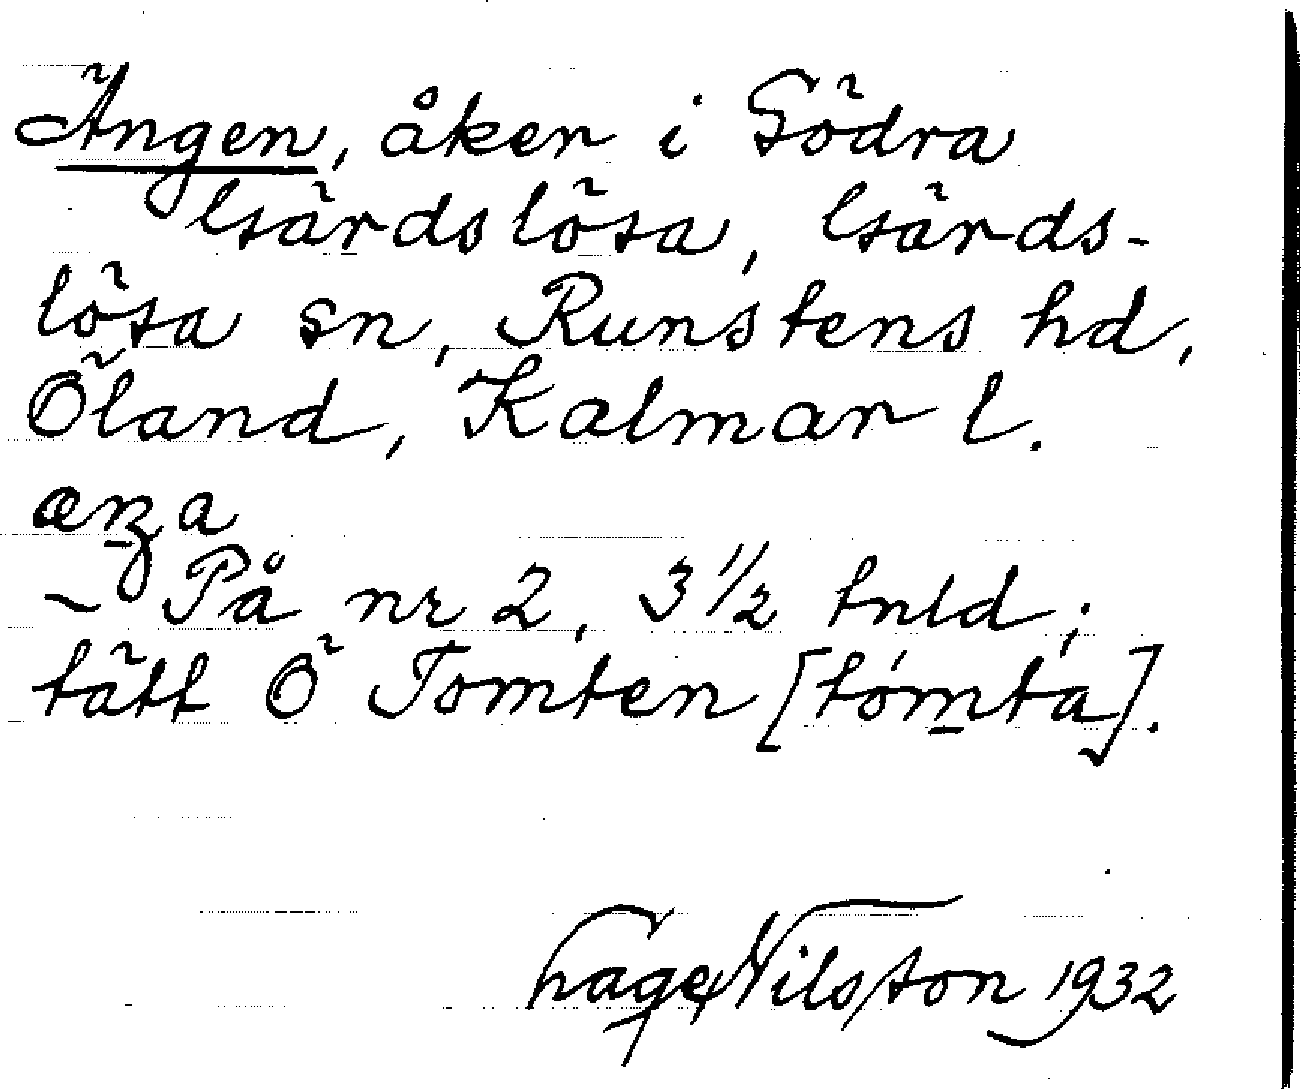 Ängen, åker i Södra
Gärdslösa, Gärds-
lösa sn, Runstens hd,
Öland, Kalmar l.
æŋa
– På nr 2, 3 1/2 tnld;
tätt Ö Tomten [tómta].
Hage Nilsson 1932